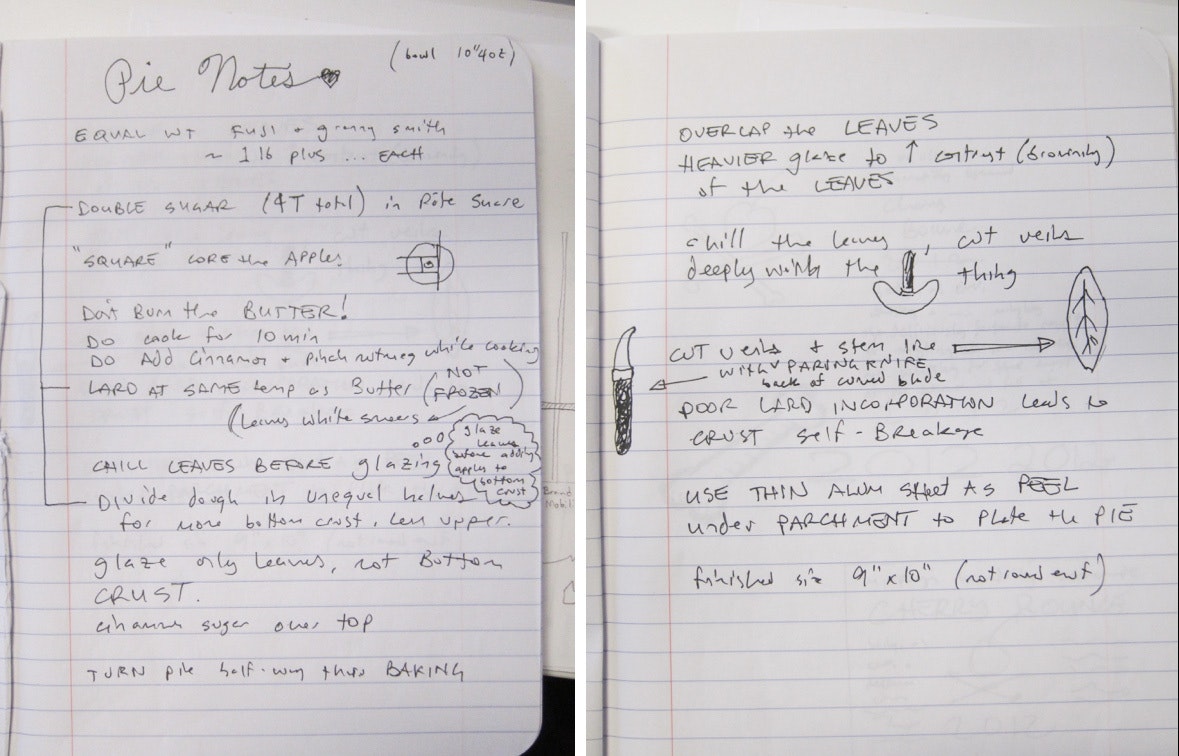 Pie Notes
(bowl 10"4oz)
EQUAL WT FUJI + granny smith
~ 1 lb plus ... EACH
DOUBLE SUGAR (4T total) in Pâte Sucre
"SQUARE" CORE the APPLES
Don't Burn the BUTTER!
DO cook for 10 min
DO Add Cinnamon + pinch nutmeg while cooking
LARD AT SAME temp as Butter (NOT FROZEN)
(leaves white smears
CHILL LEAVES BEFORE glazing
glaze
leaves
before adding
apples to
bottom
crust
Divide dough in unequal halves
for more bottom crust, less upper.
glaze only leaves, not Bottom
CRUST.
cinnamon sugar over top
TURN pie half-way thru BAKING
OVERLAP the LEAVES
HEAVIER glaze to ↑ contrast (browning)
of the LEAVES
chill the leaves, cut veins
deeply with the thing
CUT veins + stem line
WITH PARING KNIFE
back of curved blade
POOR LARD INCORPORATION leads to
CRUST self-Breakage
USE THIN ALUM sheet AS PEEL
under PARCHMENT to Plate the PIE
finished size 9"x10" (not round)